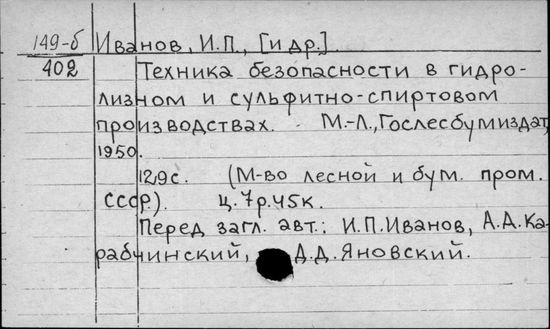 149-б Иванов, И.П., [и др.]
402 Техника безопасности в гидро-
лизном и сульфитно-спиртовом
производствах. М.-Л., Гослесбумиздат,
1950.
129с. (М-во лесной и бум. пром.
СССР). ц. 7р.45к.
Перед загл. авт.: И.П.Иванов, А.Д.Ка-
рабчинский, Д.Д.Яновский.